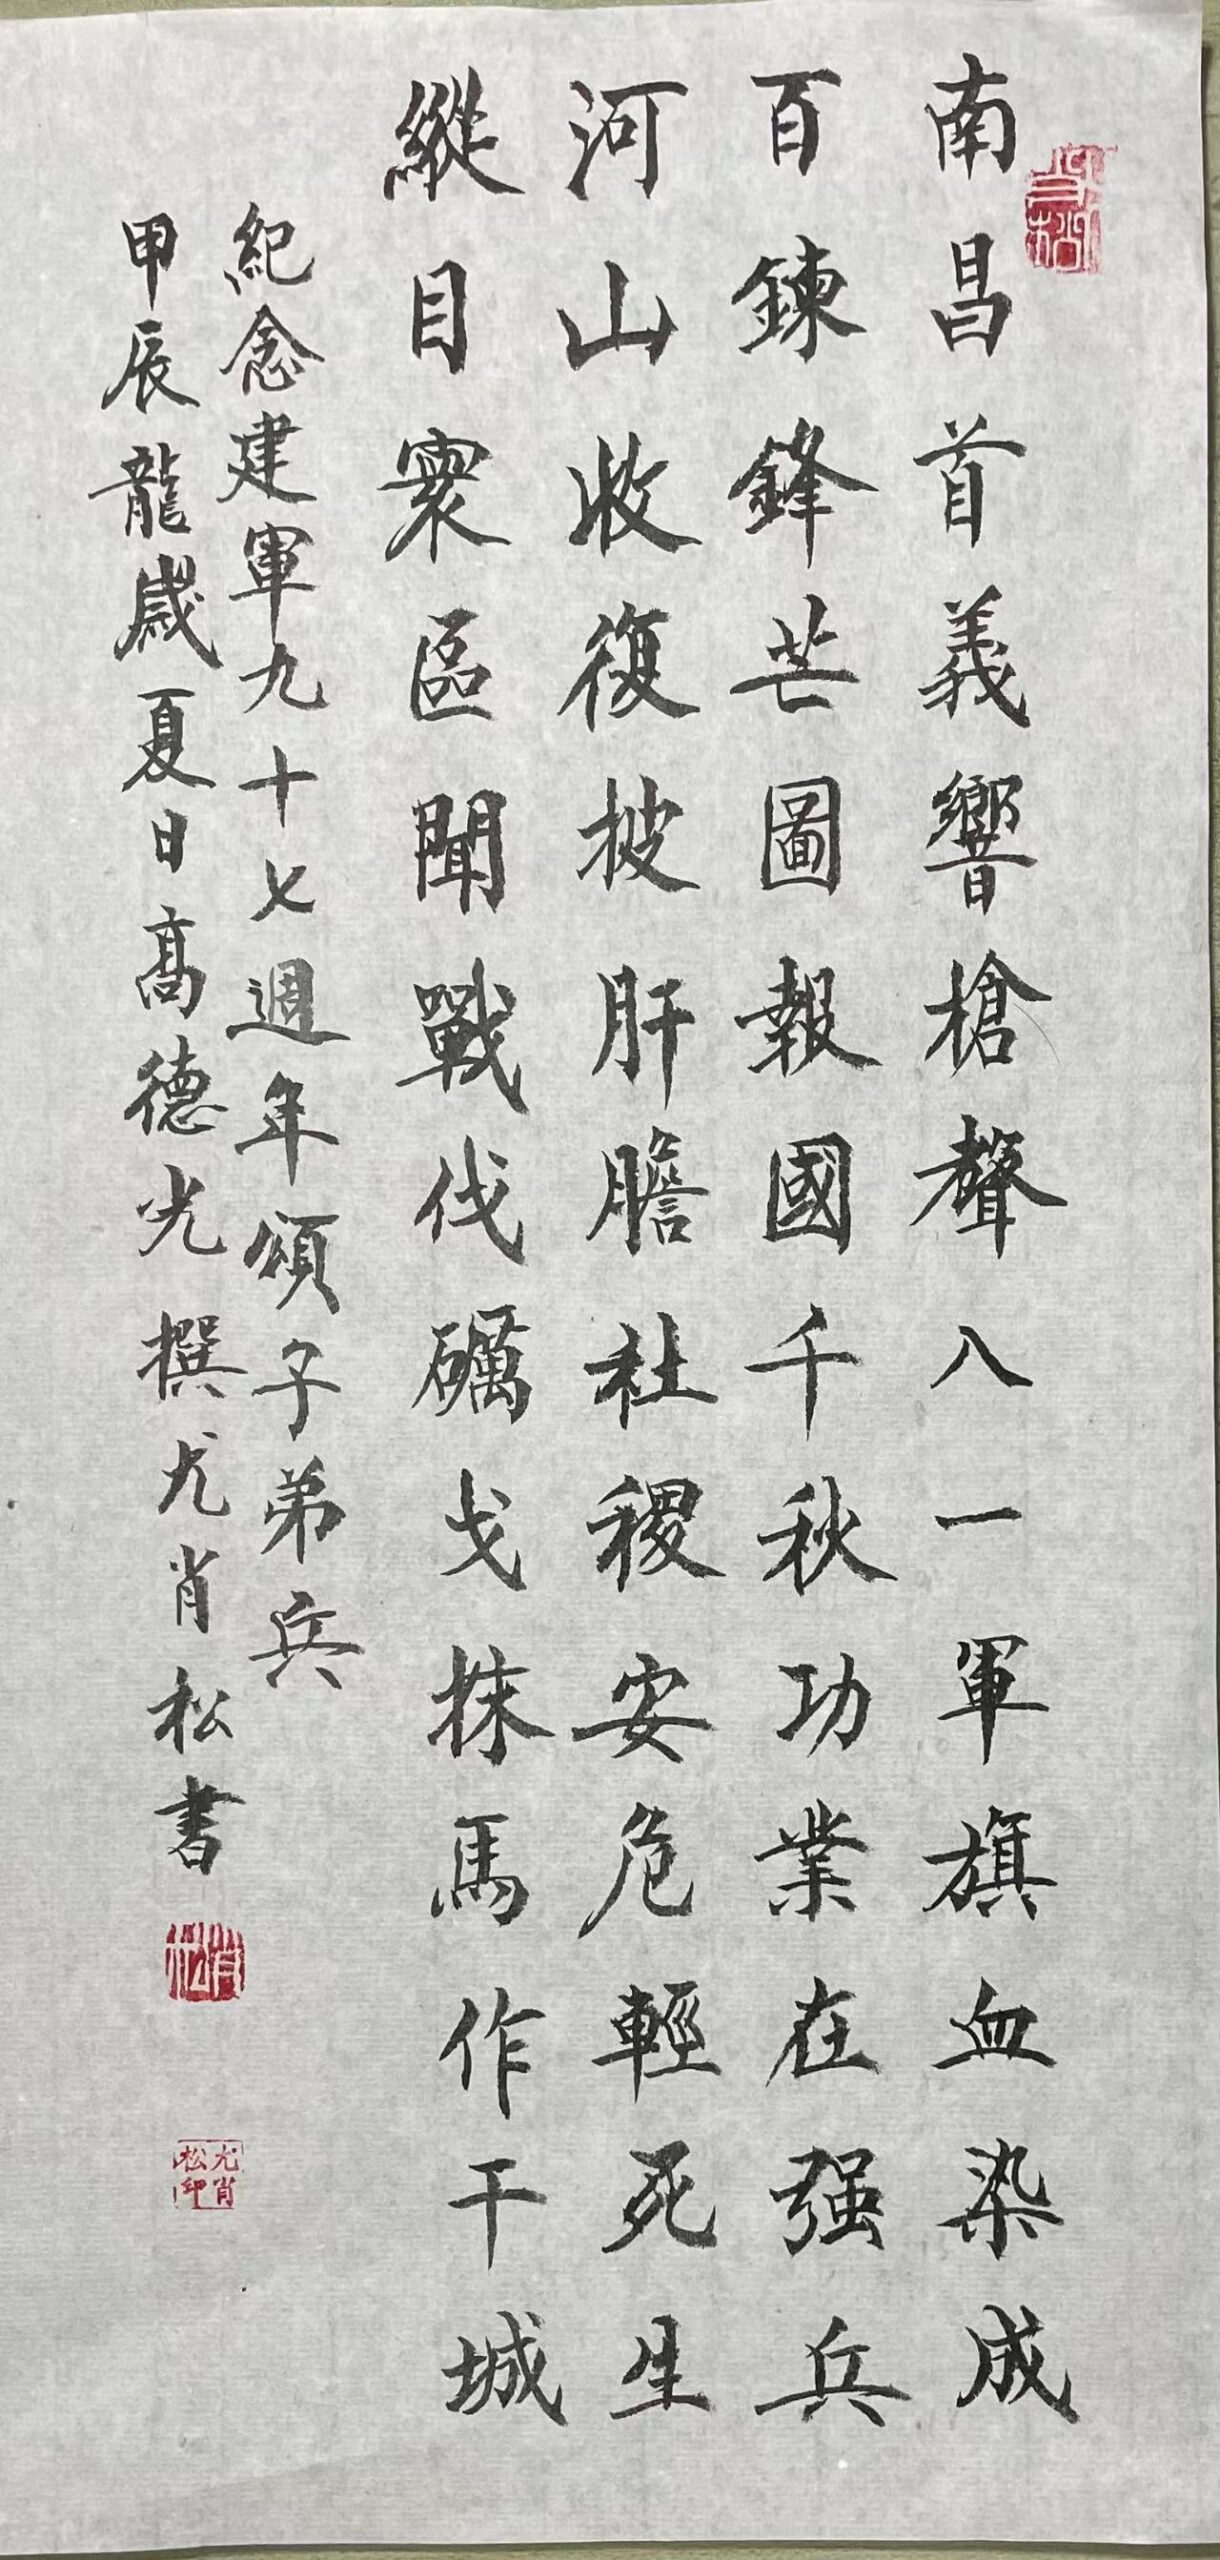 南昌首義響槍聲八一軍旗血染成
百鍊鋒芒圖報國千秋功業在强兵
河山收復披肝膽社稷安危輕死生
縱目寰區聞戰伐礪戈抹馬作干城
紀念建軍九十七週年頌子弟兵
甲辰龍歲夏日髙德光 撰尤肖松書
肖松
尤肖松印